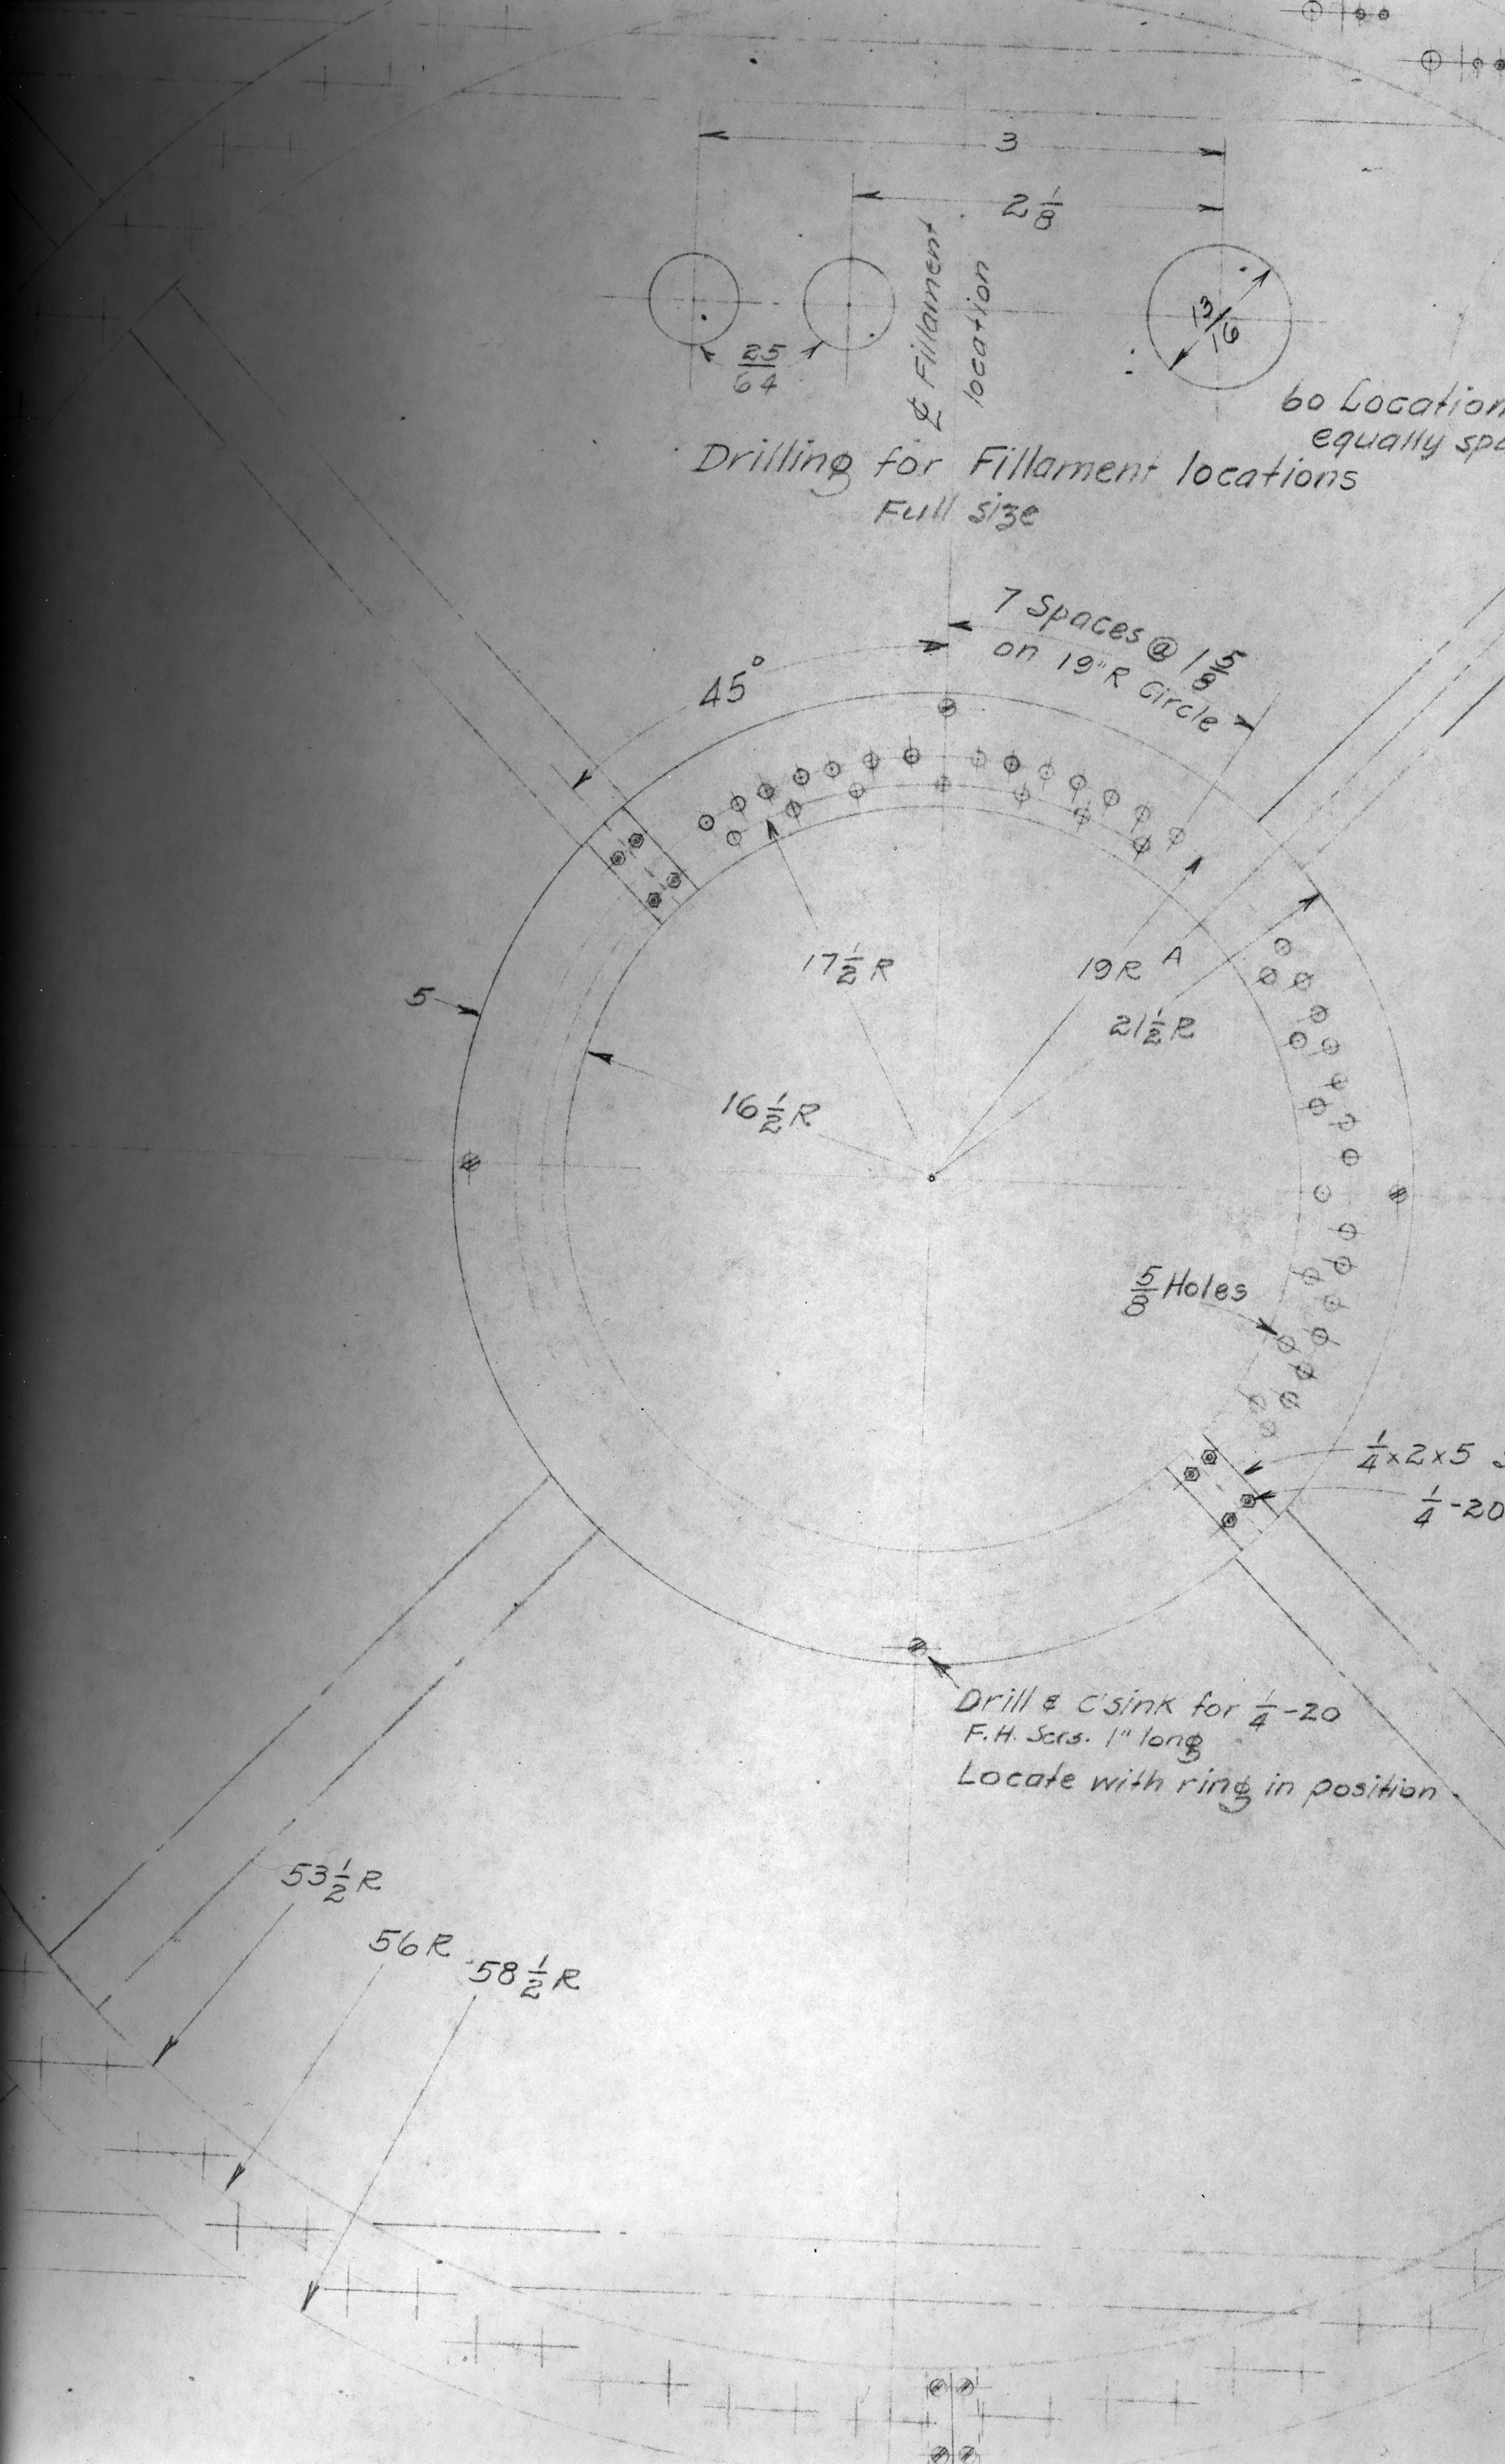 3
2 1/8
℄ Fillament
location
13/16
25/64
60 Location
equally spa
Drilling for Fillament locations
Full size
7 Spaces @ 1 5/8
on 19"R Circle
45°
17 1/2 R
19R A
5
21 1/2 R
16 1/2 R
5/8 Holes
1/4 x 2 x 5
1/4-20
Drill & C'sink for 1/4-20
F.H. Scrs. 1" long
Locate with ring in position
53 1/2 R
56 R
58 1/2 R